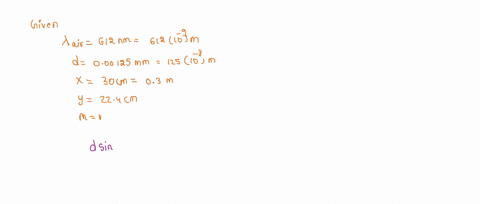 Given
λair = 612 nm = 612 (10⁻⁹) m
d = 0.00125 mm = 125 (10⁻⁸) m
x = 30cm = 0.3 m
y = 22.4 cm
m = 1
d sin